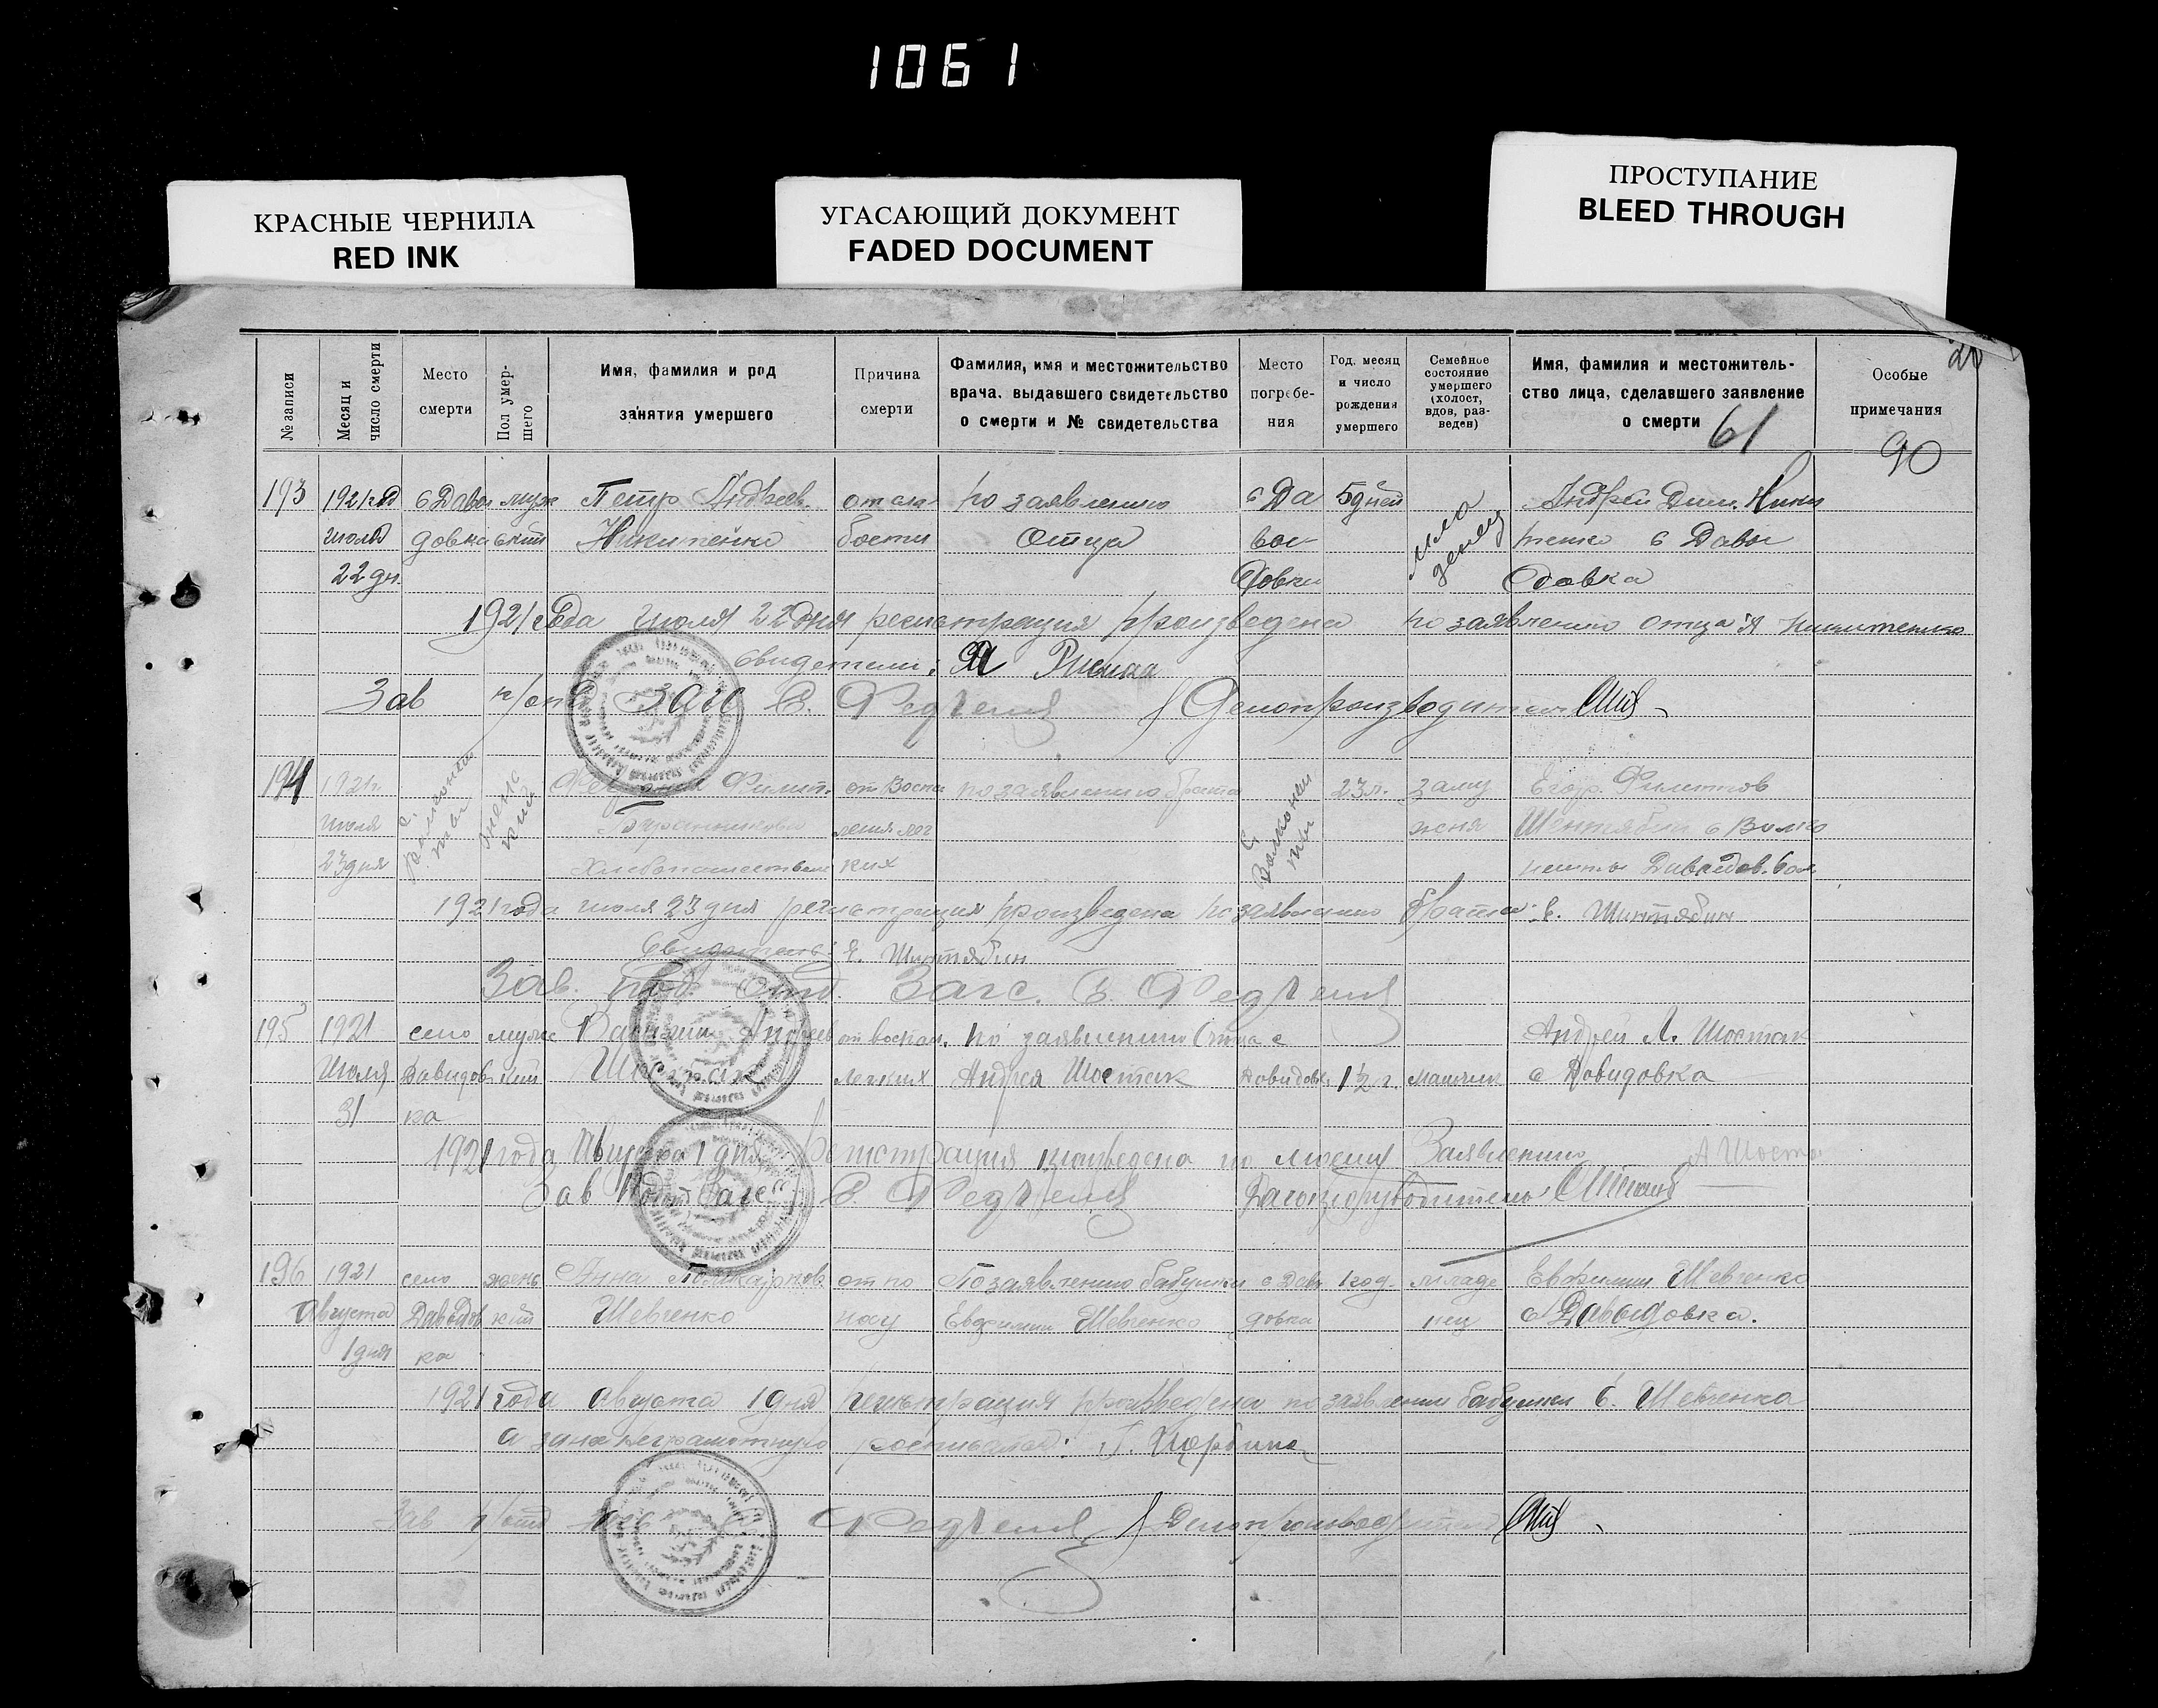 1061
КРАСНЫЕ ЧЕРНИЛА
RED INK
УГАСАЮЩИЙ ДОКУМЕНТ
FADED DOCUMENT
ПРОСТУПАНИЕ
BLEED THROUGH
20
№ записи
Месяц и
число смерти
Место
смерти
Пол умер-
шего
Имя, фамилия и род
занятия умершего
Причина
смерти
Фамилия, имя и местожительство
врача, выдавшего свидетельство
о смерти и № свидетельства
Место
погребе-
ния
Год, месяц
и число
рождения
умершего
Семейное
состояние
умершего
(холост,
вдов, раз-
веден)
Имя, фамилия и местожитель-
ство лица, сделавшего заявление
о смерти
61
Особые
примечания
90
193
1921 год
июля
22 дн.
с Давы
довка
муж
ский
Петр Андреев.
Никитенко
от сла
бости
по заявлению
отца
с Да
вы
довки
5 дней
мла
денец
Андрей Дим. Ники
тенко с Давы
довка
1921 года июля 22 дня регистрация произведена по заявлению отца А Никитенко
свидетели:
Зав п/отд Загс В. Делопроизводитель
194
1921г.
июля
23 дня
с.
женс
кий
Филип.
хлебопашество
от воспа
ления лег
ких
по заявлению брата
с.
23 л.
заму
жняя
Егор. Филиппов
Шинтябин с Волко
Давыдов. вол
1921 года июля 23 дня регистрация произведена по заявлению брата Е. Шинтябин
Свидетель: Я. Шинтябин
Зав. под. отд. Загс. В.
195
1921
Июля
31
село
Давидов
ка
муж
кий
Василий Андреев
Шостак
от воспал.
легких
по заявлению отца
Андрея Шостак
с
Давидовк.
1½ г.
мальчик
Андрей Л. Шостак
с Давидовка
1921 года Августа 1 дня Регистрация произведена по моему Заявлению А Шоста
Зав Подотд Загс В.
196
1921
Августа
1 дня
село
Давыдов
ка
женс
кий
Анна
Шевченко
от по
носу
По заявлению бабушки
Евфимии Шевченко
с Давы
довка
год
младе
нец
Евфимия Шевченко
с Давыдовка.
1921 года августа 1 дня регистрация произведена по заявлении бабушки Е. Шевченко
а за неграмотную росписалась:
Зав п/отд Загс Делопроизводитель